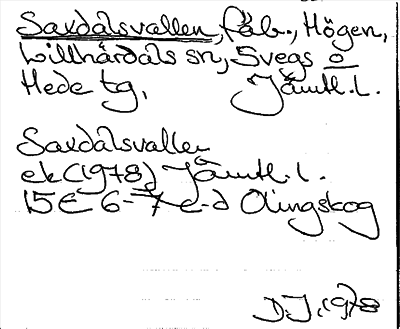 Saxdalsvallen, fäb., Högen,
Lillhärdals sn, Svegs o
Hede tg, Jämtl. l.
Saxdalsvallen
ek (1978) Jämtl. l.
15E 6-7 c-d Olingskog
D.J. 1978